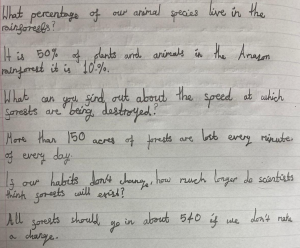 What percentage of our animal species live in the
rainforests?
It is 50% of plants and animals in the Amazon
rainforest it is 10%.
What can you find out about the speed at which
forests are being destroyed?
More than 150 acres of forests are lost every minute
of every day.
If our habits don't change, how much longer do scientists
think forests will exist?
All forests should go in about 540 if we don't make
a change.